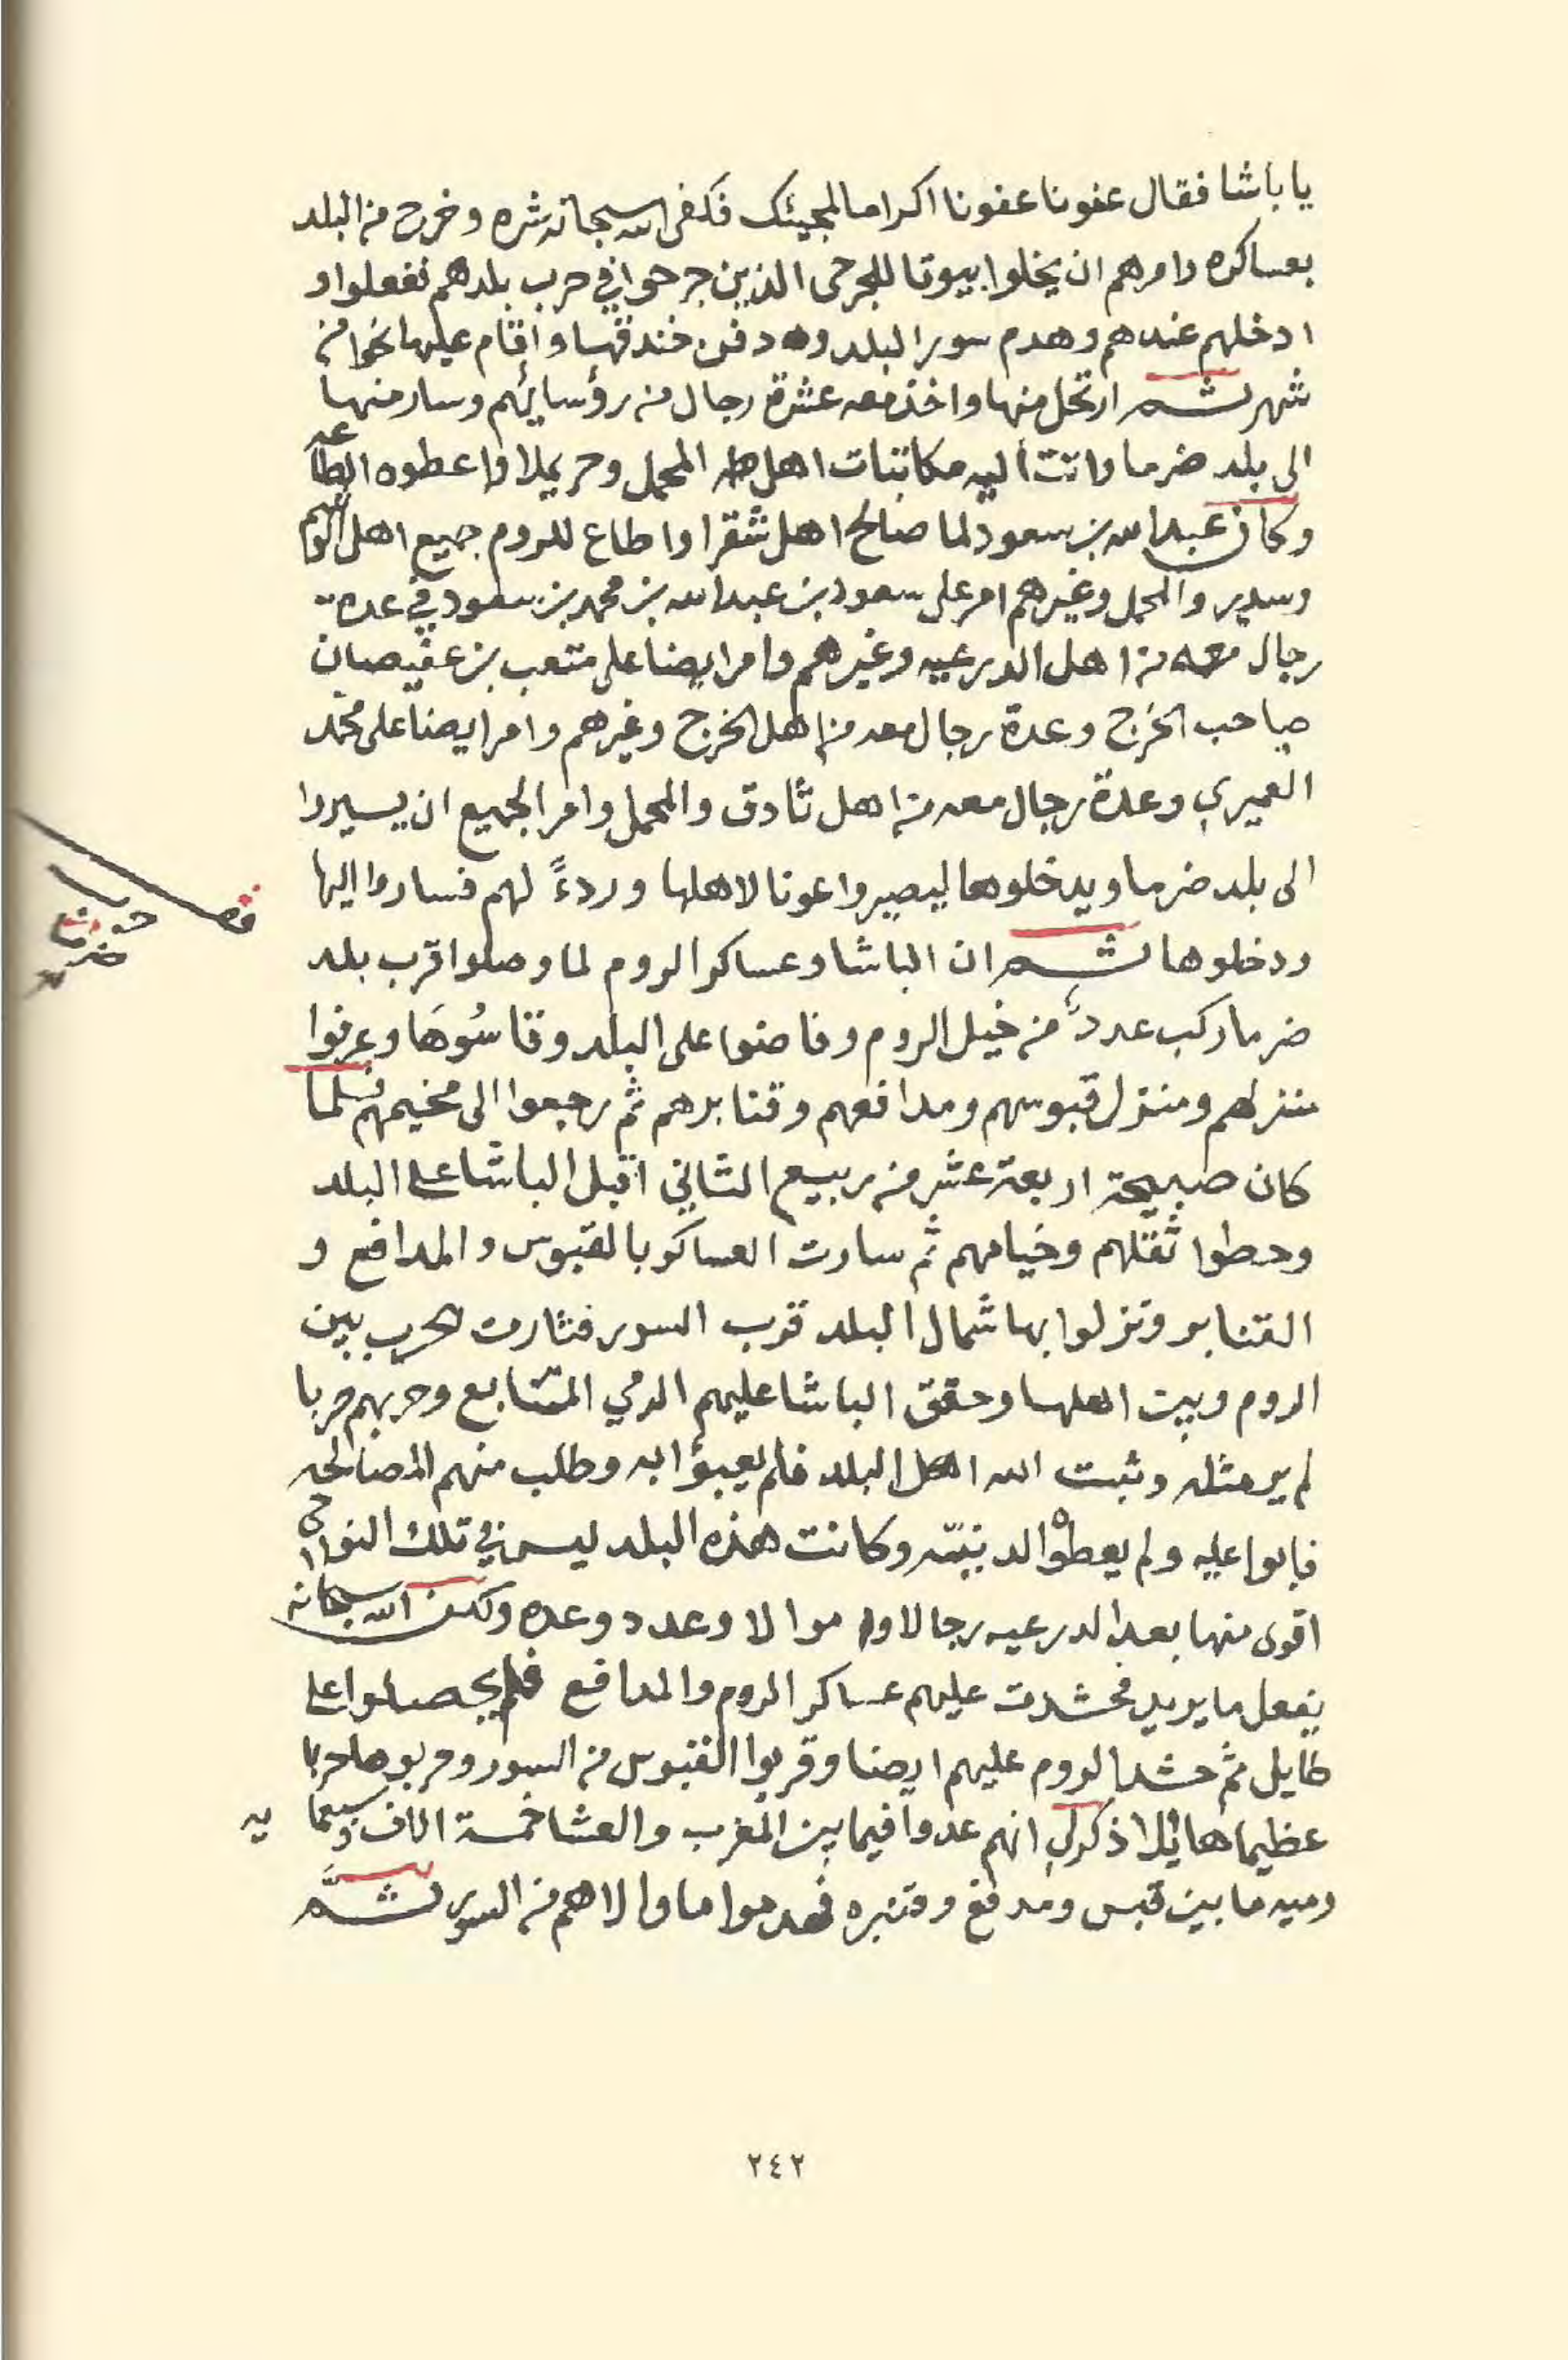 يا باشا فقال عفونا عفونا اكراما لمجيئك فكفى الله سبحانه شره وخرج من البلد
بعساكره وامرهم ان يخلوا بيوتا للجرحى الذين جرحوا في حرب بلدهم ففعلوا و
ادخلهم عندهم وهدم سور البلد ودفن خندقها واقام عليها نحوا من
شهر ثم ارتحل منها واخذ معه عشرة رجال من رؤسائهم وسار منها
الى بلد ضرما واتت اليه مكاتبات اهل المحمل وحريملا واعطوه الطاعه
وكان عبدالله بن سعود لما صالح اهل شقرا واطاع للروم جميع اهل الوشم
وسدير والمحمل وغيرهم امر على سعود بن عبدالله بن محمد بن سعود في عدة
رجال معه من اهل الدرعيه وغيرهم وامر ايضا على متعب بن عفيصان
صاحب الخرج وعدة رجال معه من اهل الخرج وغيرهم وامر ايضا على محمد
العميري وعدة رجال معه من اهل ثادق والمحمل وامر الجميع ان يسيروا
الى بلد ضرما ويدخلوها ليصيروا عونا لاهلها وردءً لهم فساروا اليها
قصة
حرب
ضرما
ودخلوها ثم ان الباشا وعساكر الروم لما وصلوا قرب بلد
ضرما ركب عددٌ من خيل الروم وفاضوا على البلد وقاسُوهَا وعرفوا
منزلهم ومنزل قبوسهم ومدافعهم وقنابرهم ثم رجعوا الى مخيمهم فلما
كان صبيحة اربعة عشر من ربيع الثاني اقبل الباشا على البلد
وحطوا ثقلهم وخيامهم ثم سارت العساكر بالقبوس والمدافع و
القنابر ونزلوا بها شمال البلد قرب السور فثارت الحرب بين
الروم وبين اهلها وحقق الباشا عليهم الرمي المتتابع وحربهم حربا
لم ير مثله وثبت الله اهل البلد فلم يعبؤا به وطلب منهم المصالحه
فابوا عليه ولم يعطوه الدنيّه وكانت هذه البلد ليس في تلك النواحي
اقوى منها بعد الدرعيه رجالا واموالا وعدد وعده ولكن الله سبحانه
يفعل ما يريد فحشدت عليهم عساكر الروم والمدافع فلم يحصلوا على
طايل ثم حشد الروم عليهم ايضا وقربوا القبوس من السور وحربوها حربا
عظيما هائلا ذكر لي انهم عدوا فيما بين المغرب والعشا خمسة الاف وسبعمايه
رميه ما بين قبس ومدفع وقنبره فهدموا ما والاهم من السور ثم
٢٤٢